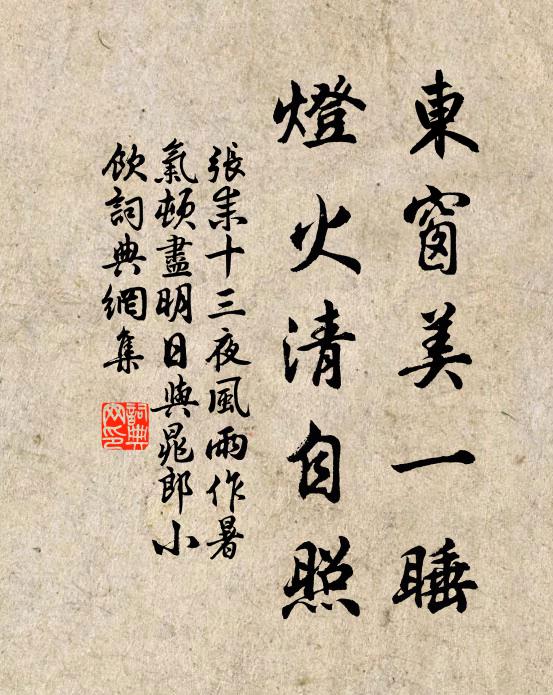 東窗美一睡
燈火清自照
張耒十三夜風雨作暑
氣頓盡明日與晁郎小
飲詞典網集
詞典
网印